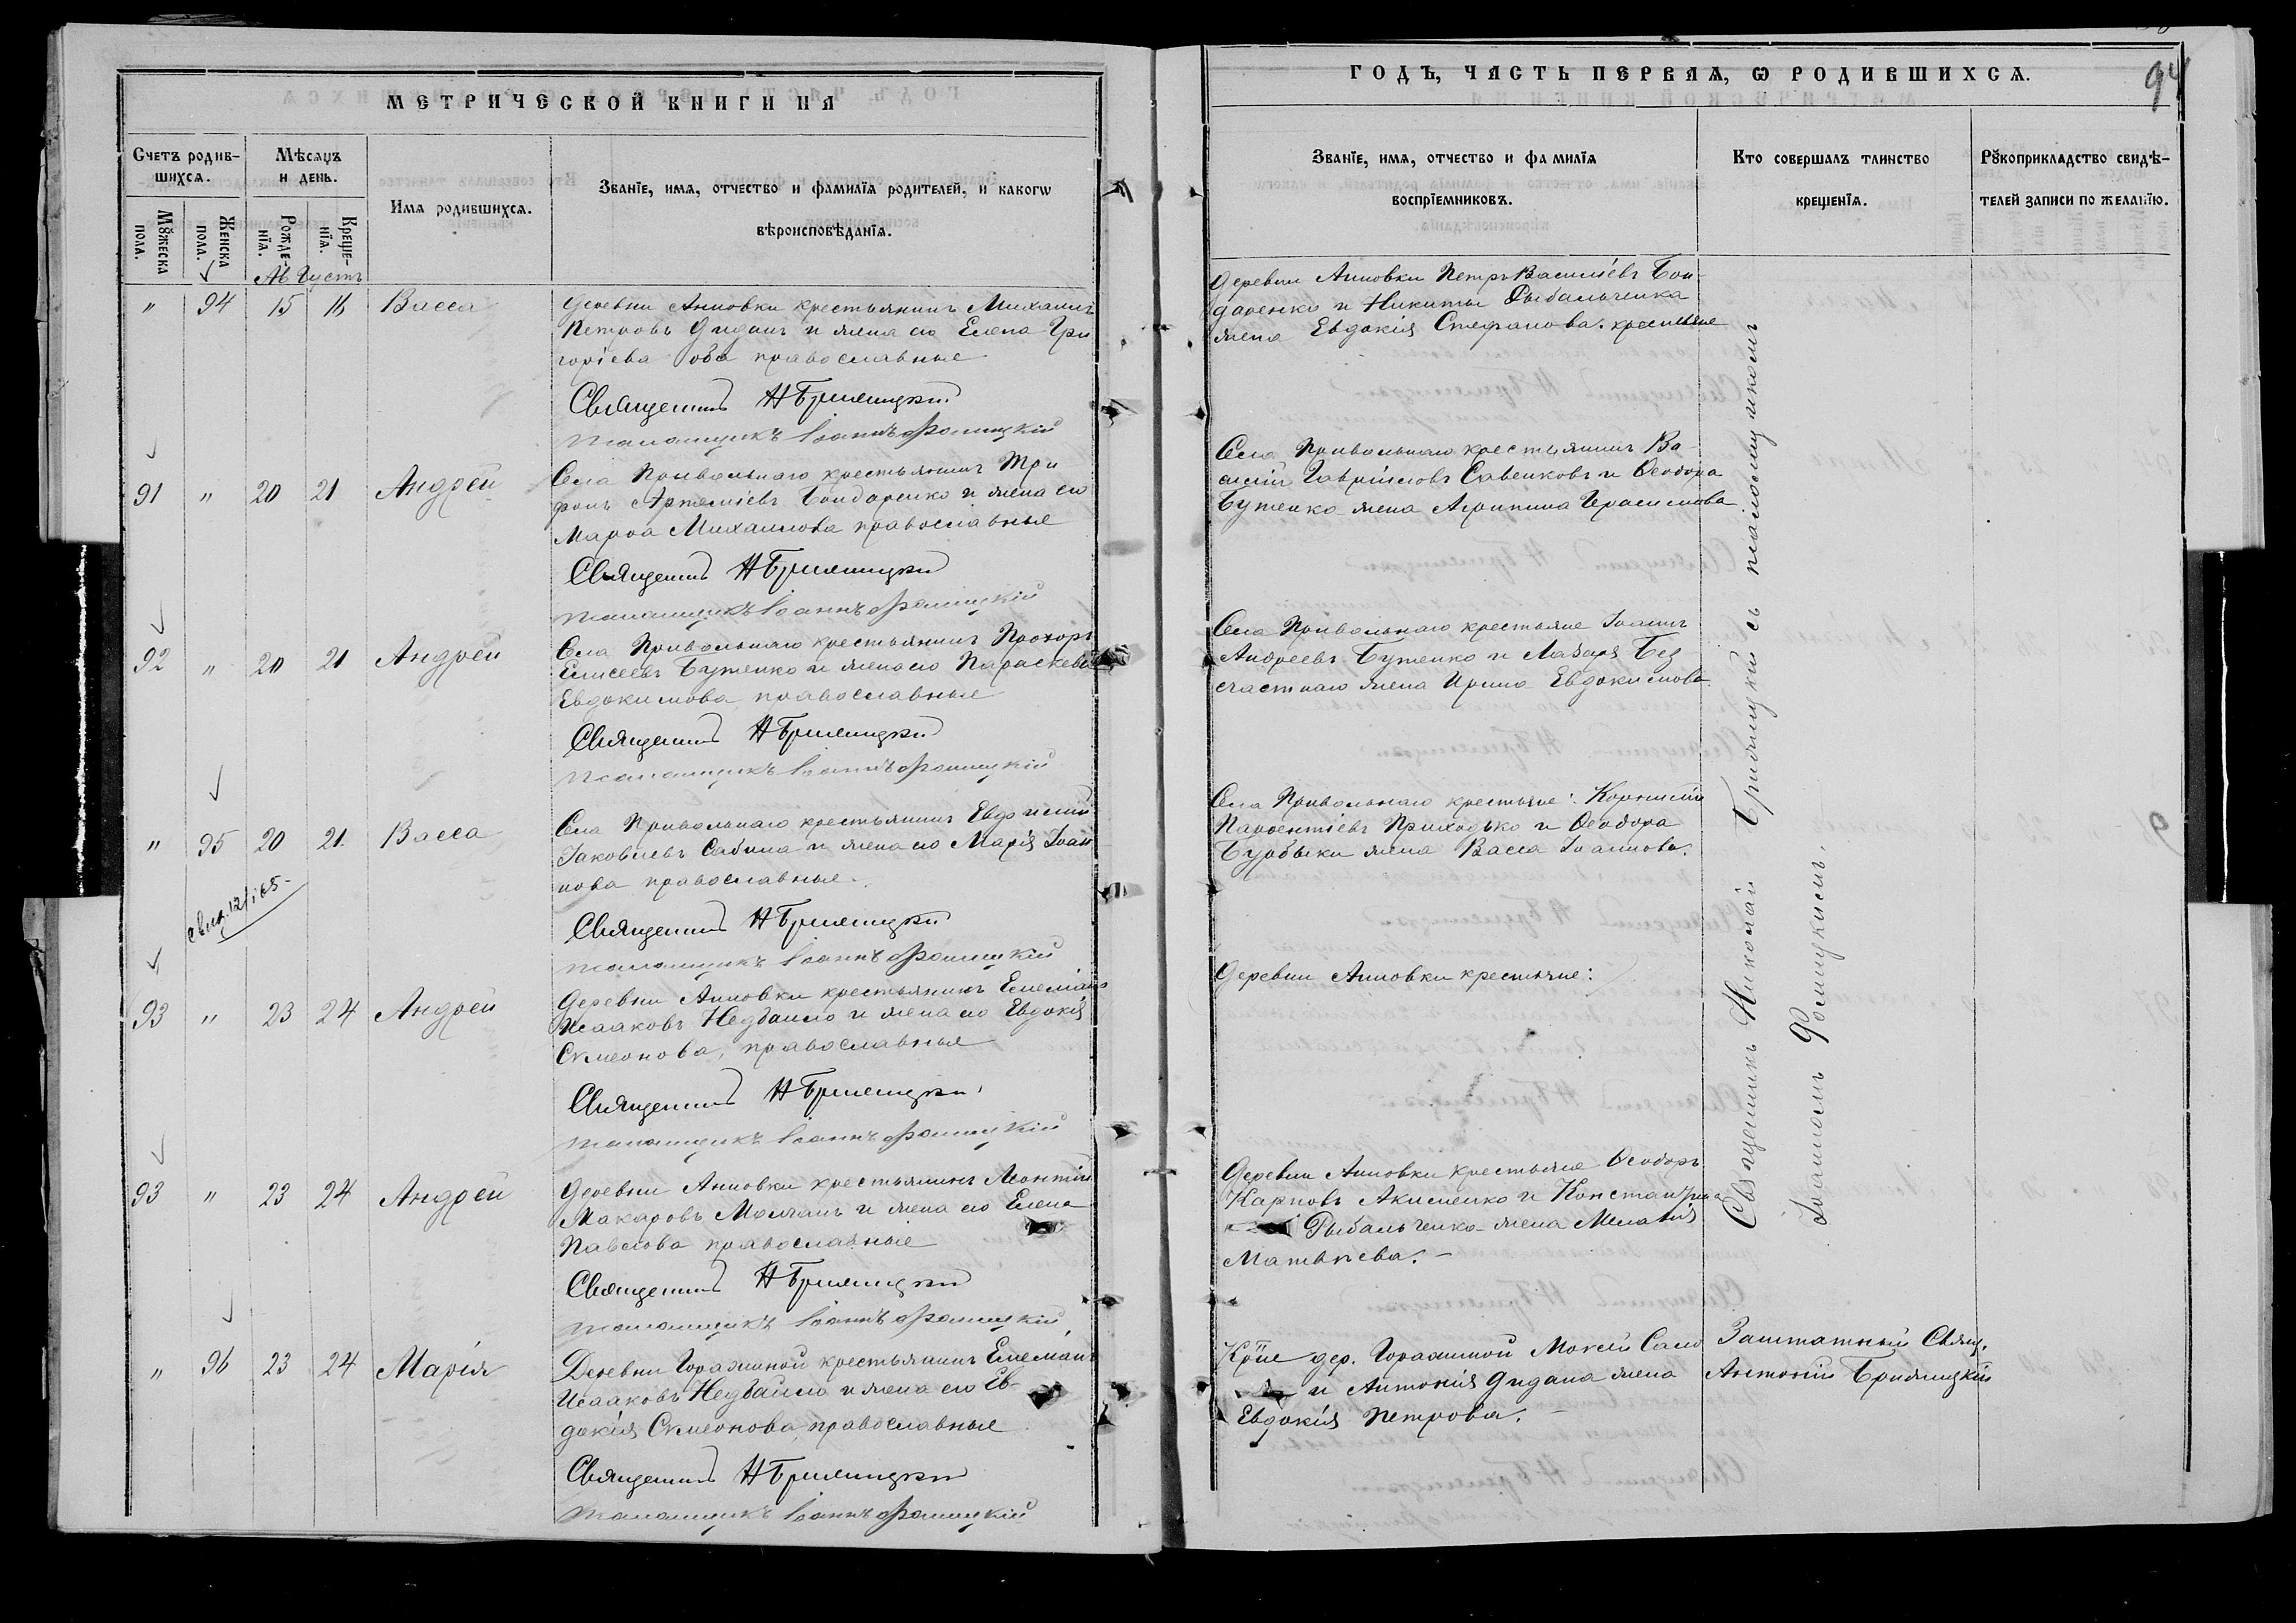 МЕТРИЧЕСКОЙ КНИГИ НА
Счетъ родив-
шихся.
Мѣсяцъ
и день.
Имя родившихся.
Званїе, имя, отчество и фамилїя родителей, и какогѡ
вѣроисповѣданїя.
Мꙋжеска
пола.
Женска
пола.
Рожде-
нїя.
Креще-
нїя.
Августъ
" 94 15 16 Васса
Деревни Анновки крестьянинъ Михаилъ
Петровъ Дидашъ и жена его Елена Гри
горіева оба православные
Священникъ Н Бриллицкій
псаломщикъ Іоаннъ Фомицкій
91 " 20 21 Андрей
Села Привольнаго крестьянинъ Три
фонъ Артеміевъ Бондаренко и жена его
Марѳа Михаилова православные
Священникъ Н Бриллицкій
псаломщикъ Іоаннъ Фомицкій
92 " 20 21 Андрей
Села Привольнаго крестьянинъ Прохоръ
Елисеевъ Бутенко и жена его Параскева
Евдокимова православные
Священникъ Н Бриллицкій
псаломщикъ Іоаннъ Фомицкій
" 95 20 21 Васса
Села Привольнаго крестьянинъ
Іаковлевъ и жена его Марія Іоан
нова православные.
Священникъ Н Бриллицкій
псаломщикъ Іоаннъ Фомицкій
93 " 23 24 Андрей
Деревни Анновки крестьянинъ
Исааковъ Недбайло и жена его Евдокія
Симеонова, православные
Священникъ Н Бриллицкій
псаломщикъ Іоаннъ Фомицкій
93 " 23 24 Андрей
Деревни Анновки крестьянинъ Леонтій
Макаровъ Молчанъ и жена его Елена
Павлова православные
Священникъ Н Бриллицкій
псаломщикъ Іоаннъ Фомицкій
" 96 23 24 Марія
Деревни Горажиной крестьянинъ
Исааковъ Недбайло и жена его Ев-
докія Симеонова православные
Священникъ Н Бриллицкій
псаломщикъ Іоаннъ Фомицкій
94
ГОДЪ, ЧАСТЬ ПЕРВАЯ, Ѡ РОДИВШИХСЯ.
Званїе, имя, отчество и фамилїя
воспрїемниковъ.
Кто совершалъ таинство
крещенїя.
Рꙋкоприкладство свидѣ-
телей записи по желанїю.
Деревни Анновки Петръ Василіевъ Бон
даренко и Никиты Рыбальченка
жена Евдокія Стефанова. крестьяне
Села Привольнаго крестьянинъ Ва
силій Гавріиловъ Савенковъ и Ѳеодора
Бутенко жена Агрипина Герасимова
Села Привольнаго крестьяне Іоаннъ
Андреевъ Бутенко и Лазаря Без
счастнаго жена Ирина Евдокимова.
Села Привольнаго крестьяне: Корнилій
Парѳентіевъ Приходько и Ѳеодора
жена Васса Іоаннова.
Деревни Анновки крестьяне:
Деревни Анновки крестьяне Ѳеодоръ
Карповъ Акименко и Константина
Рыбальченко жена Меланія
Матвѣева. –
дер. Горажиной Мокей
и Антонія Дидаша жена
Евдокія Петрова.
Священникъ Николай Бриллицкій съ псаломщикомъ
Іоанномъ Фомицкимъ.
Заштатный Свящ.
Антоній Бриллицкій